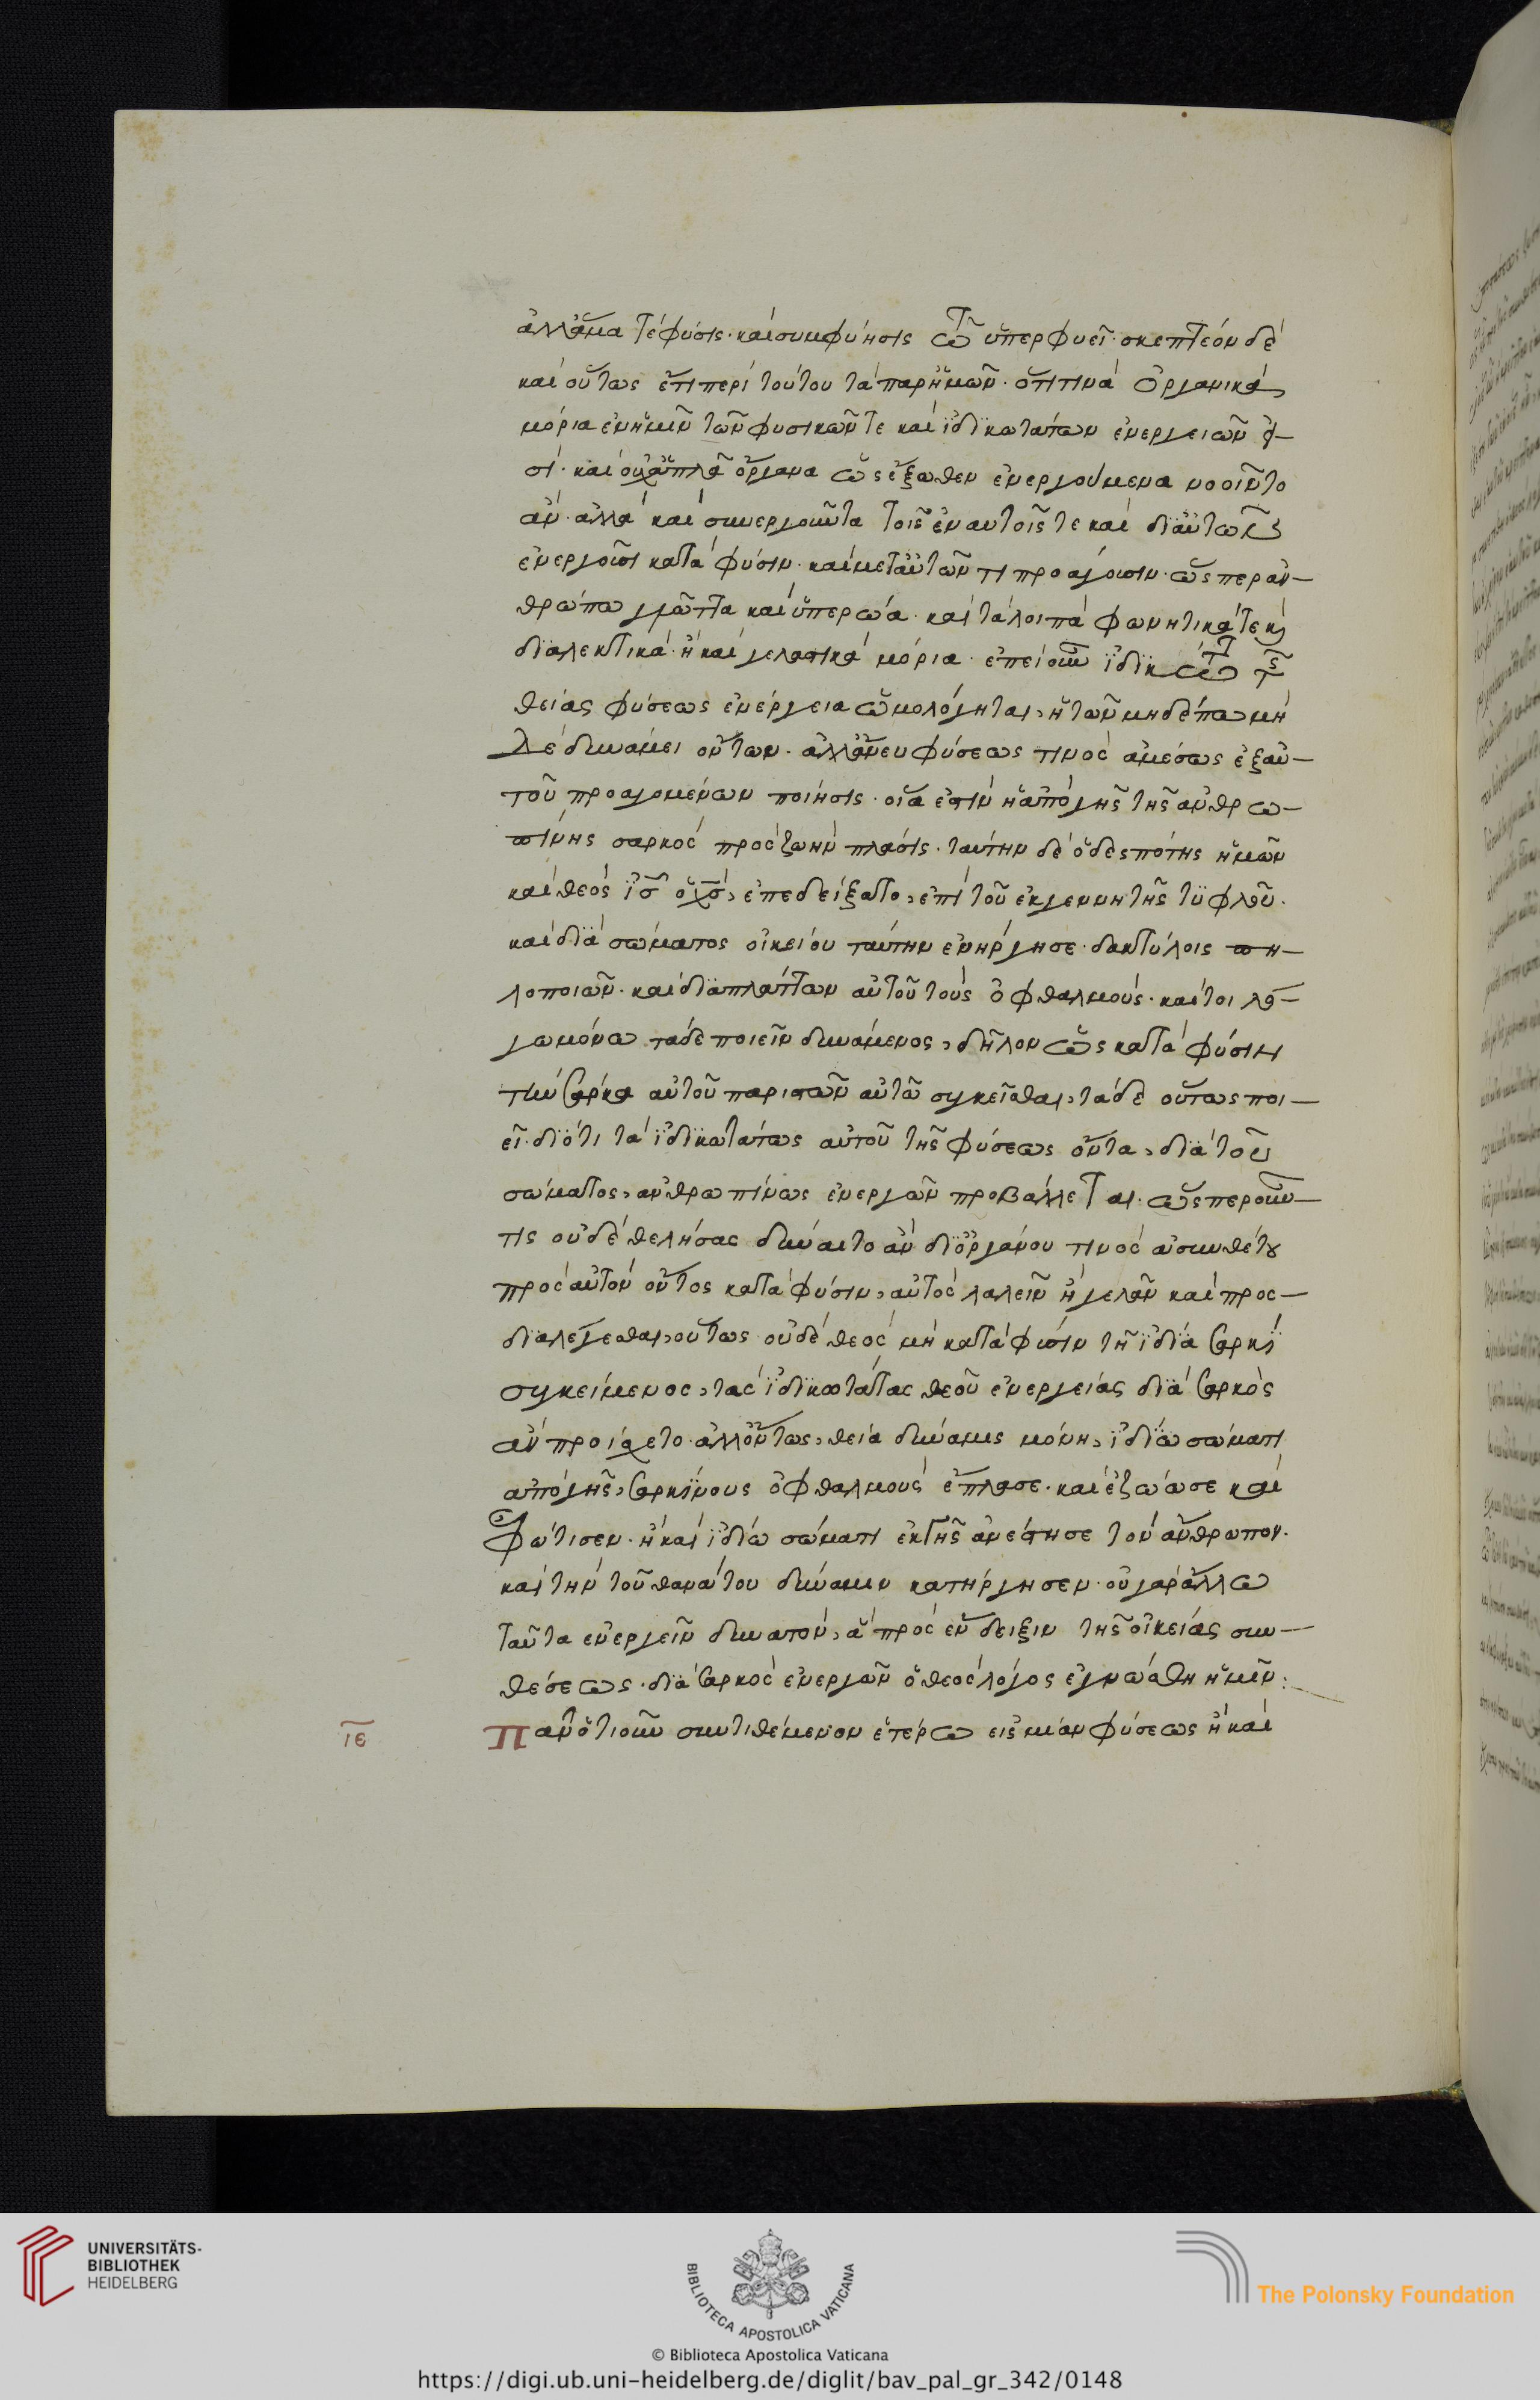 ἀλλ' ἅμα τὲ φύσις· καὶ συμφύησις τῶ ὑπερφυεῖ· σκεπτέον δὲ
καὶ οὕτως ἔτι περὶ τούτου τὰ παρ' ἡμῶν· ὅτι τινὰ ὀργανικὰ
μόρια ἐν ἡμῖν τῶν φυσικῶν τε καὶ ἰδικωτάτων ἐνεργειῶν εἰ-
σί· καὶ οὐχ' ἁπλᾶ ὄργανα ὡς ἔξωθεν ἐνεργούμενα νοοῖντο
ἄν· ἀλλὰ καὶ συνεργοῦντα τοῖς ἐν αυτοῖς τε καὶ δι' αὐτῶν
ἐνεργοῦσι κατὰ φύσιν· καὶ μετ' αὐτῶν τι προάγουσιν· ὥσπερ ἀν-
θρώπω γλῶττα καὶ ὑπερώα· καὶ τὰ λοιπὰ φωνητικά τε κὶ
διαλεκτικὰ· ἢ καὶ γελαστικὰ μόρια· ἐπεὶ οὖν ἰδικωτάτη τῆς
θείας φύσεως ἐνέργεια ὡμολόγηται, ἡ τῶν μηδέπω μὴ
δὲ δυνάμει ὄντων· ἀλλ' ἄνευ φύσεως τινὸς ἀμέσως ἐξ αὐ-
τοῦ προαγομένων ποίησις· οἵα ἐστὶν ἡ ἀπὸ γῆς τῆς ἀνθρω-
πίνης σαρκὸς πρὸς ζωὴν πλάσις· ταύτην δὲ ὁ δεσπότης ἡμῶν
καὶ θεὸς ἰσ ὁ χσ, ἐπεδείξατο, ἐπὶ τοῦ ἐκ γεννητῆς τυφλοῦ·
καὶ διὰ σώματος οἰκείου ταύτην ἐνήργησε· δακτύλοις πη-
λοποιῶν· καὶ διαπλάττων αὐτοῦ τοὺς ὀφθαλμούς· καίτοι λό-
γω μόνω τάδε ποιεῖν δυνάμενος, δῆλον ὡς κατὰ φύσιν
τὴν σάρκα αὐτοῦ παριστῶν αὐτῶ συγκεῖσθαι, τάδε οὕτως ποι-
εῖ· διότι τὰ ἰδικωτάτως αὐτοῦ τῆς φύσεως ὄντα, διὰ τοῦ
σώματος, ἀνθρωπίνως ἐνεργῶν προβάλλεται· ὥσπερ οὖν
τις οὐδὲ θελήσας δύναιτο ἂν δι' ὀργάνου τινὸς ἀσυνθέτου
πρὸς αὐτὸν ὄντος κατὰ φύσιν, αὐτὸς λαλεῖν ἢ γελᾶν καὶ προσ-
διαλέγεσθαι, οὕτως οὐδὲ θεὸς μὴ κατὰ φύσιν τῆ ἰδία σαρκὶ
συγκείμενος, τὰς ἰδικωτάτας θεοῦ ἐνεργείας διὰ σαρκὸς
ἂν προίσχετο· ἀλλ' ὄντως, θεία δύναμις μόνη, ἰδίω σώματι
ἀπὸ γῆς, σαρκίνους ὀφθαλμοὺς ἔπλασε· καὶ ἐζώωσε καὶ
ἐφώτισεν· ἢ καὶ ἰδίω σώματι ἐκ γῆς ἀνέστησε τὸν ἄνθρωπον·
καὶ τὴν τοῦ θανάτου δύναμιν κατήργησεν· οὐ γὰρ ἄλλω
ταῦτα ἐνεργεῖν δυνατόν, ἃ πρὸς ἔνδειξιν τῆς οἰκείας συν-
θέσεως· διὰ σαρκὸς ἐνεργῶν ὁ θεὸς λόγος ἐγνώσθη ἡμῖν:
ιε Πᾶν ὁτιοῦν συντιθέμενον ἑτέρω εἰς μίαν φύσεως ἢ καὶ
UNIVERSITÄTS-
BIBLIOTHEK
HEIDELBERG
BIBLIOTECA APOSTOLICA VATICANA
The Polonsky Foundation
© Biblioteca Apostolica Vaticana
https://digi.ub.uni-heidelberg.de/diglit/bav_pal_gr_342/0148